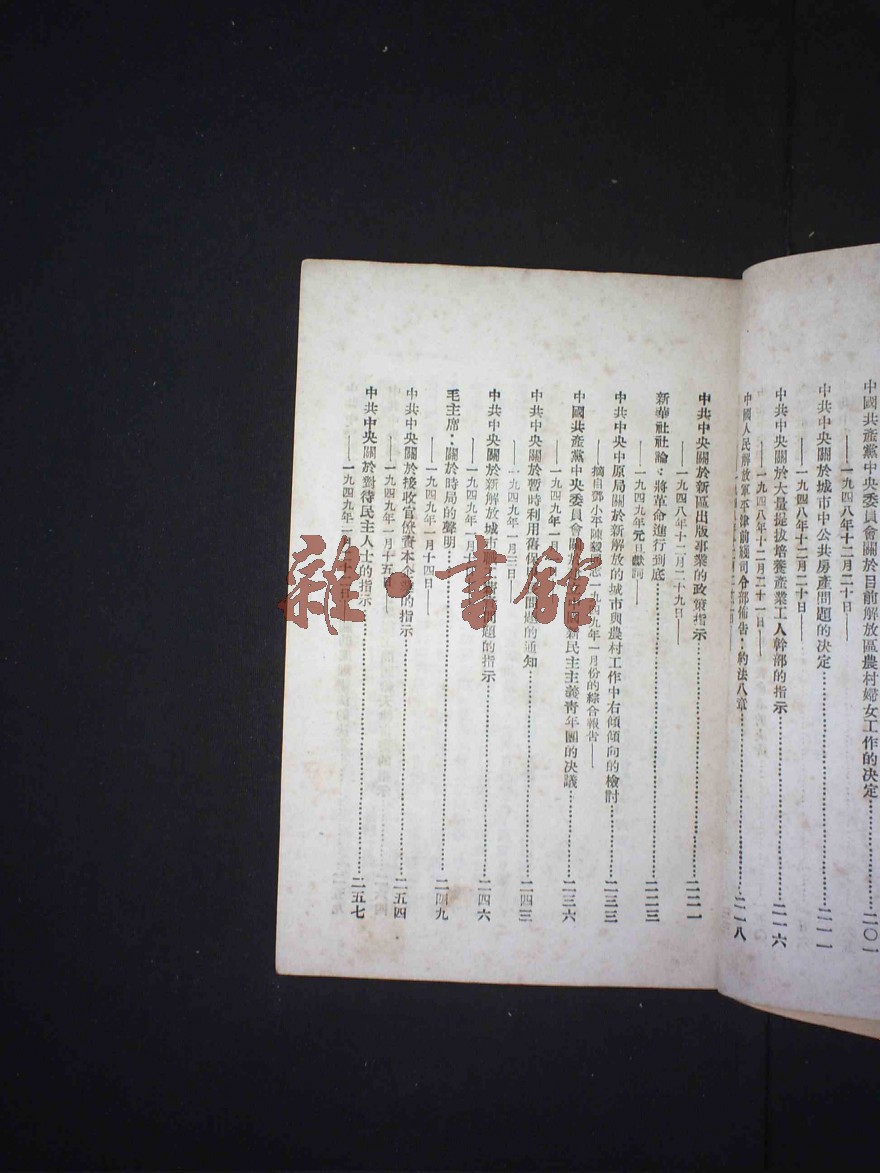 中國共產黨中央委員會關於目前解放區農村婦女工作的決定……二〇一
——一九四八年十二月二十日——
中共中央關於城市中公共房產問題的決定……二一一
——一九四八年十二月二十日——
中共中央關於大量提拔培養產業工人幹部的指示……二一六
——一九四八年十二月二十一日——
中國人民解放軍平津前綫司令部佈告：約法八章……二一八
中共中央關於新區出版事業的政策指示……二二一
——一九四八年十二月二十九日——
新華社社論：將革命進行到底……二二三
——一九四九年元旦獻詞——
中共中央中原局關於新解放的城市與農村工作中右傾傾向的檢討……二三三
——摘自鄧小平陳毅 一九 九年一月份的綜合報告——
中國共產黨中央委員會關 國新民主主義青年團的決議……二三六
——一九四九年一月
中共中央關於暫時利用舊保 問題的通知……二四三
——一九四九年一月三日——
中共中央關於新解放城市 問題的指示……二四六
——一九四九年一月十
毛主席：關於時局的聲明……二四九
——一九四九年一月十四日——
中共中央關於接收官僚資本企業的指示……二五四
——一九四九年一月十五日——
中共中央關於對待民主人士的指示……二五七
——一九四九年一月
雜·書館